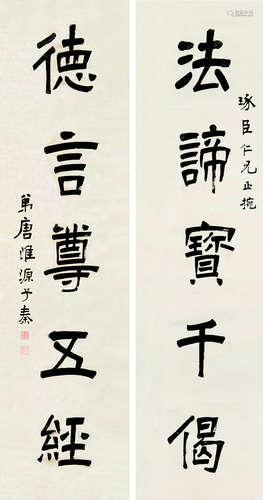 法諦寶千偈
琢臣仁兄正捥
德言尊五經
弟唐惟源子秦